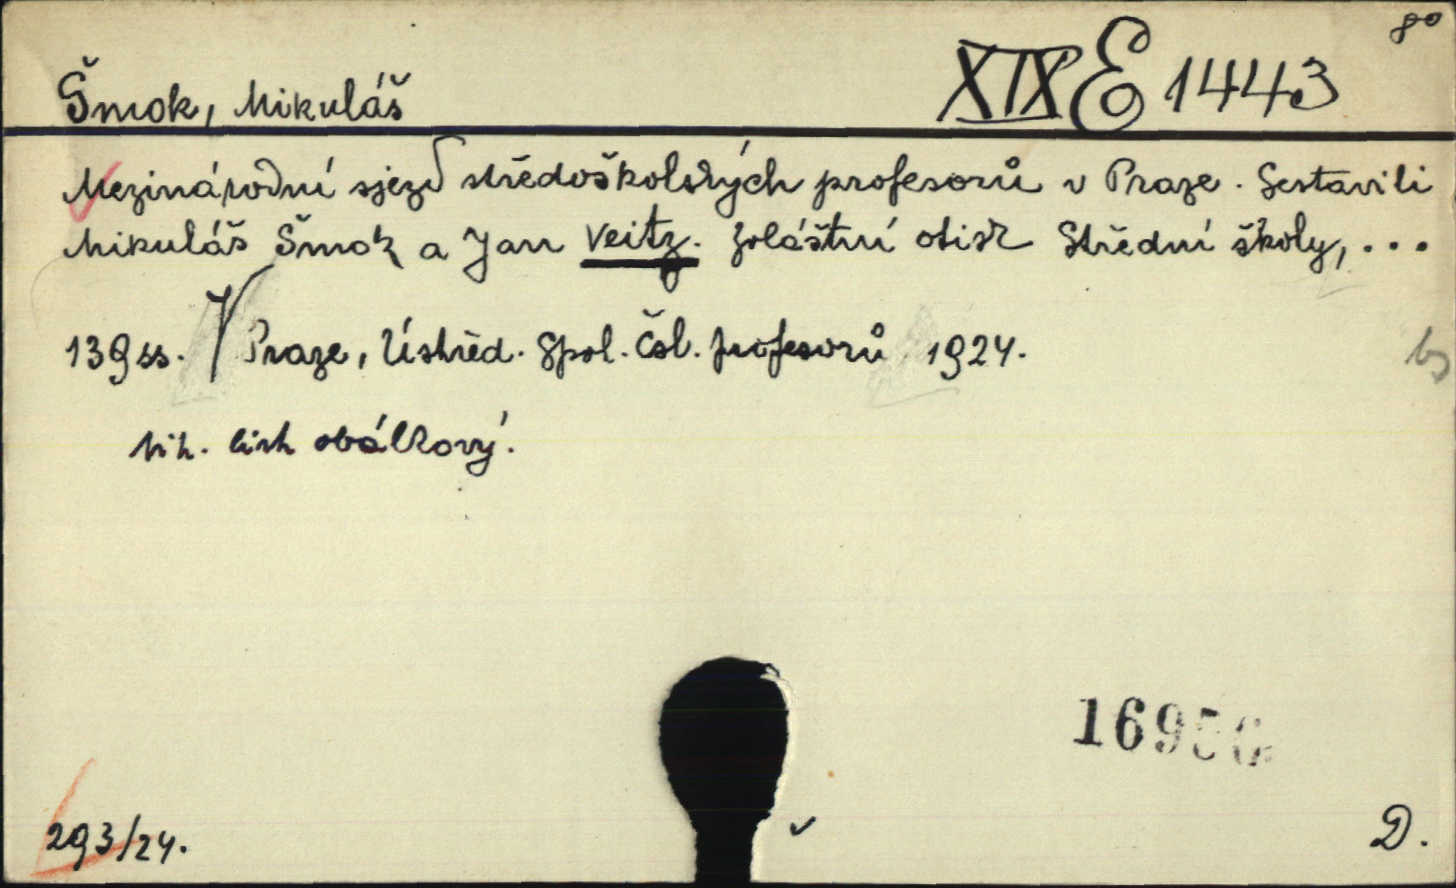 8°
Šmok, Mikuláš XIX E 1443
Mezinárodní sjezd středoškolských profesorů v Praze. Sestavili
Mikuláš Šmok a Jan Veitz. Zvláštní otisk Střední školy, ...
139 ss. V Praze, Ústřed. Spol. Čsl. profesorů 1924.
list obálkový.
293/24. D.